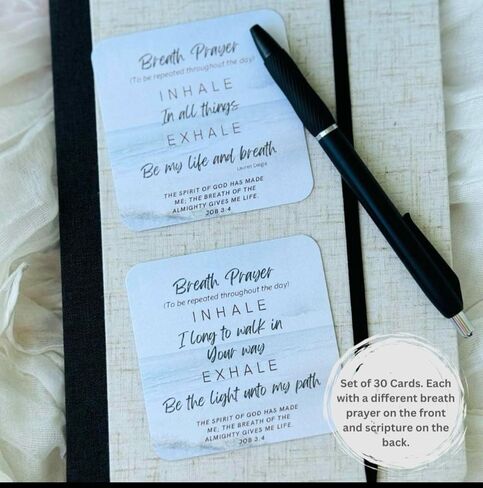 Breath Prayer
(To be repeated throughout the day)
INHALE
In all things
EXHALE
Be my life and breath
THE SPIRIT OF GOD HAS MADE
ME; THE BREATH OF THE
ALMIGHTY GIVES ME LIFE.
JOB 3:4
Breath Prayer
(To be repeated throughout the day)
INHALE
I long to walk in
Your way
EXHALE
Be the light unto my path
THE SPIRIT OF GOD HAS MADE
ME; THE BREATH OF THE
ALMIGHTY GIVES ME LIFE.
JOB 3:4
Set of 30 Cards. Each
with a different breath
prayer on the front
and scripture on the
back.